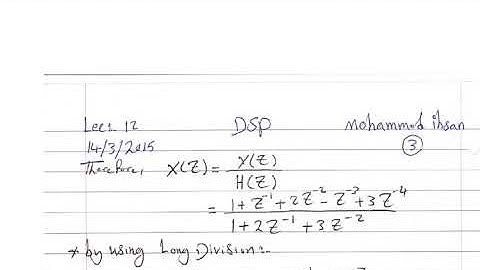 Lec. 12 DSP Mohammed ihsan
14/3/2015 3
Therefore, X(Z) = Y(Z) / H(Z)
= 1 + Z⁻¹ + 2Z⁻² - Z⁻³ + 3Z⁻⁴ / 1 + 2Z⁻¹ + 3Z⁻²
* by using Long Division:-